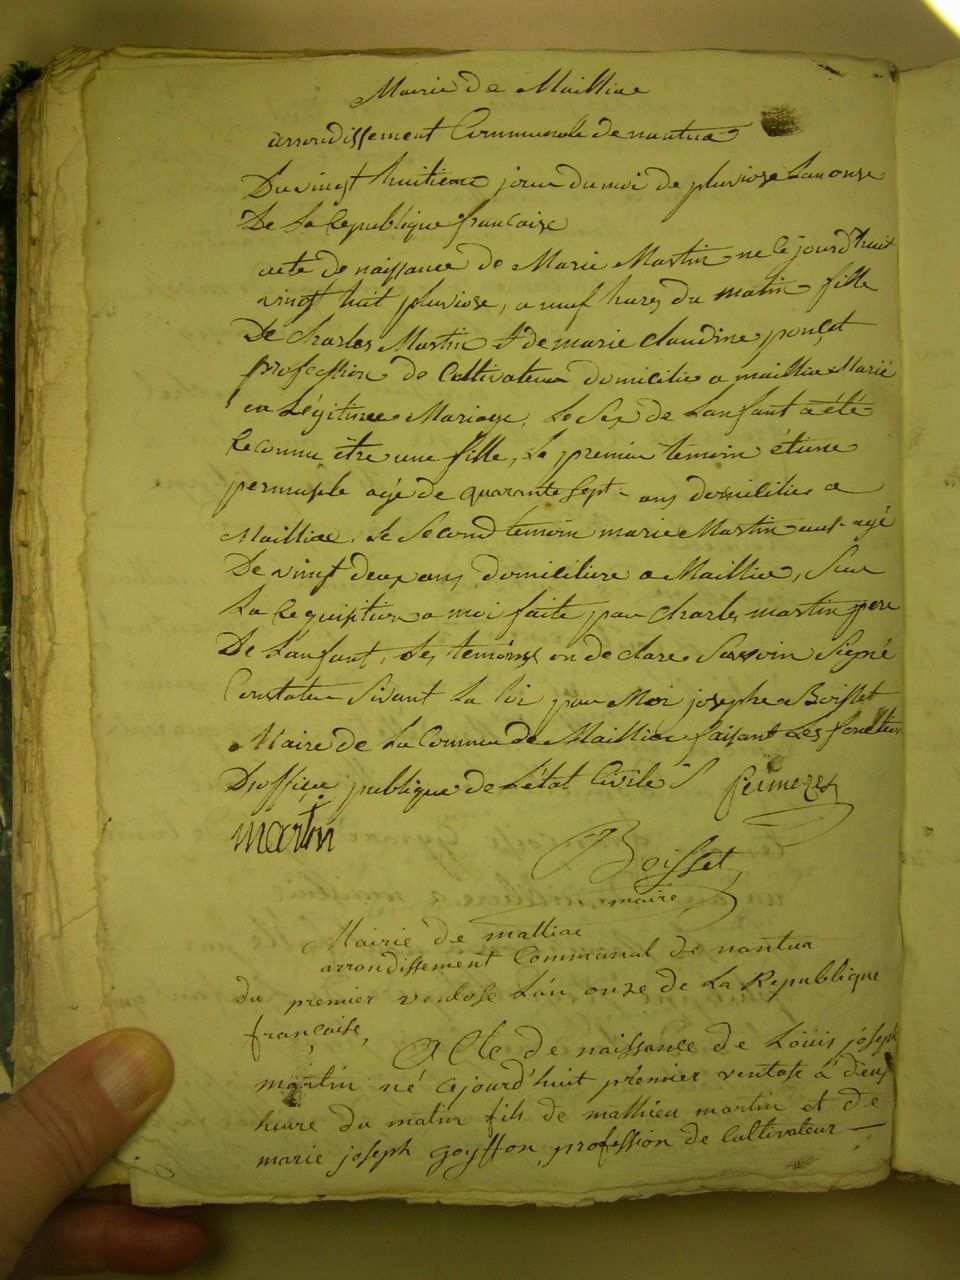 Mairie de Mailliac
arrondissement Communale de nantua
Du vingt huitieme jour du moi de pluviose Lan onze
De La Republique francaise
acte de naissance de Marie Martin ne le jourd'huit
vingt huit pluviose, a neuf hures du matin fille
De charles Martin & de marie claudine ponçet
profession de Cultivateur domicilie a maillia Marié
en Légitime Mariage, Le Sex de Lanfant a été
Reconnu être une fille, Le premier temoin étiene
agé de quarante Sept ans domicilie a
Mailliac. Le Second temoin marie Martin aussi agé
De vingt deux ans domiciliere a Maillia, Sur
La Requisition a moi faite par charles martin pere
De Lanfant, Les temoins on declare Savoir Signé
Constater Sivant La loi par Moi josephe Boisset
Maire de La Commune de Mailliac faisant Les fonction
D'officier publique de L'état Civile
martin
Boisset
maire
Mairie de malliac
arrondissement Communal de nantua
du premier ventose L'an onze de La Republique
française,
Acte de naissance de Loüis joseph
martin né cejourd'huit premier ventose à deux
heure du matin fils de mathieu martin et de
marie joseph goyffon profession de Cultivateur —